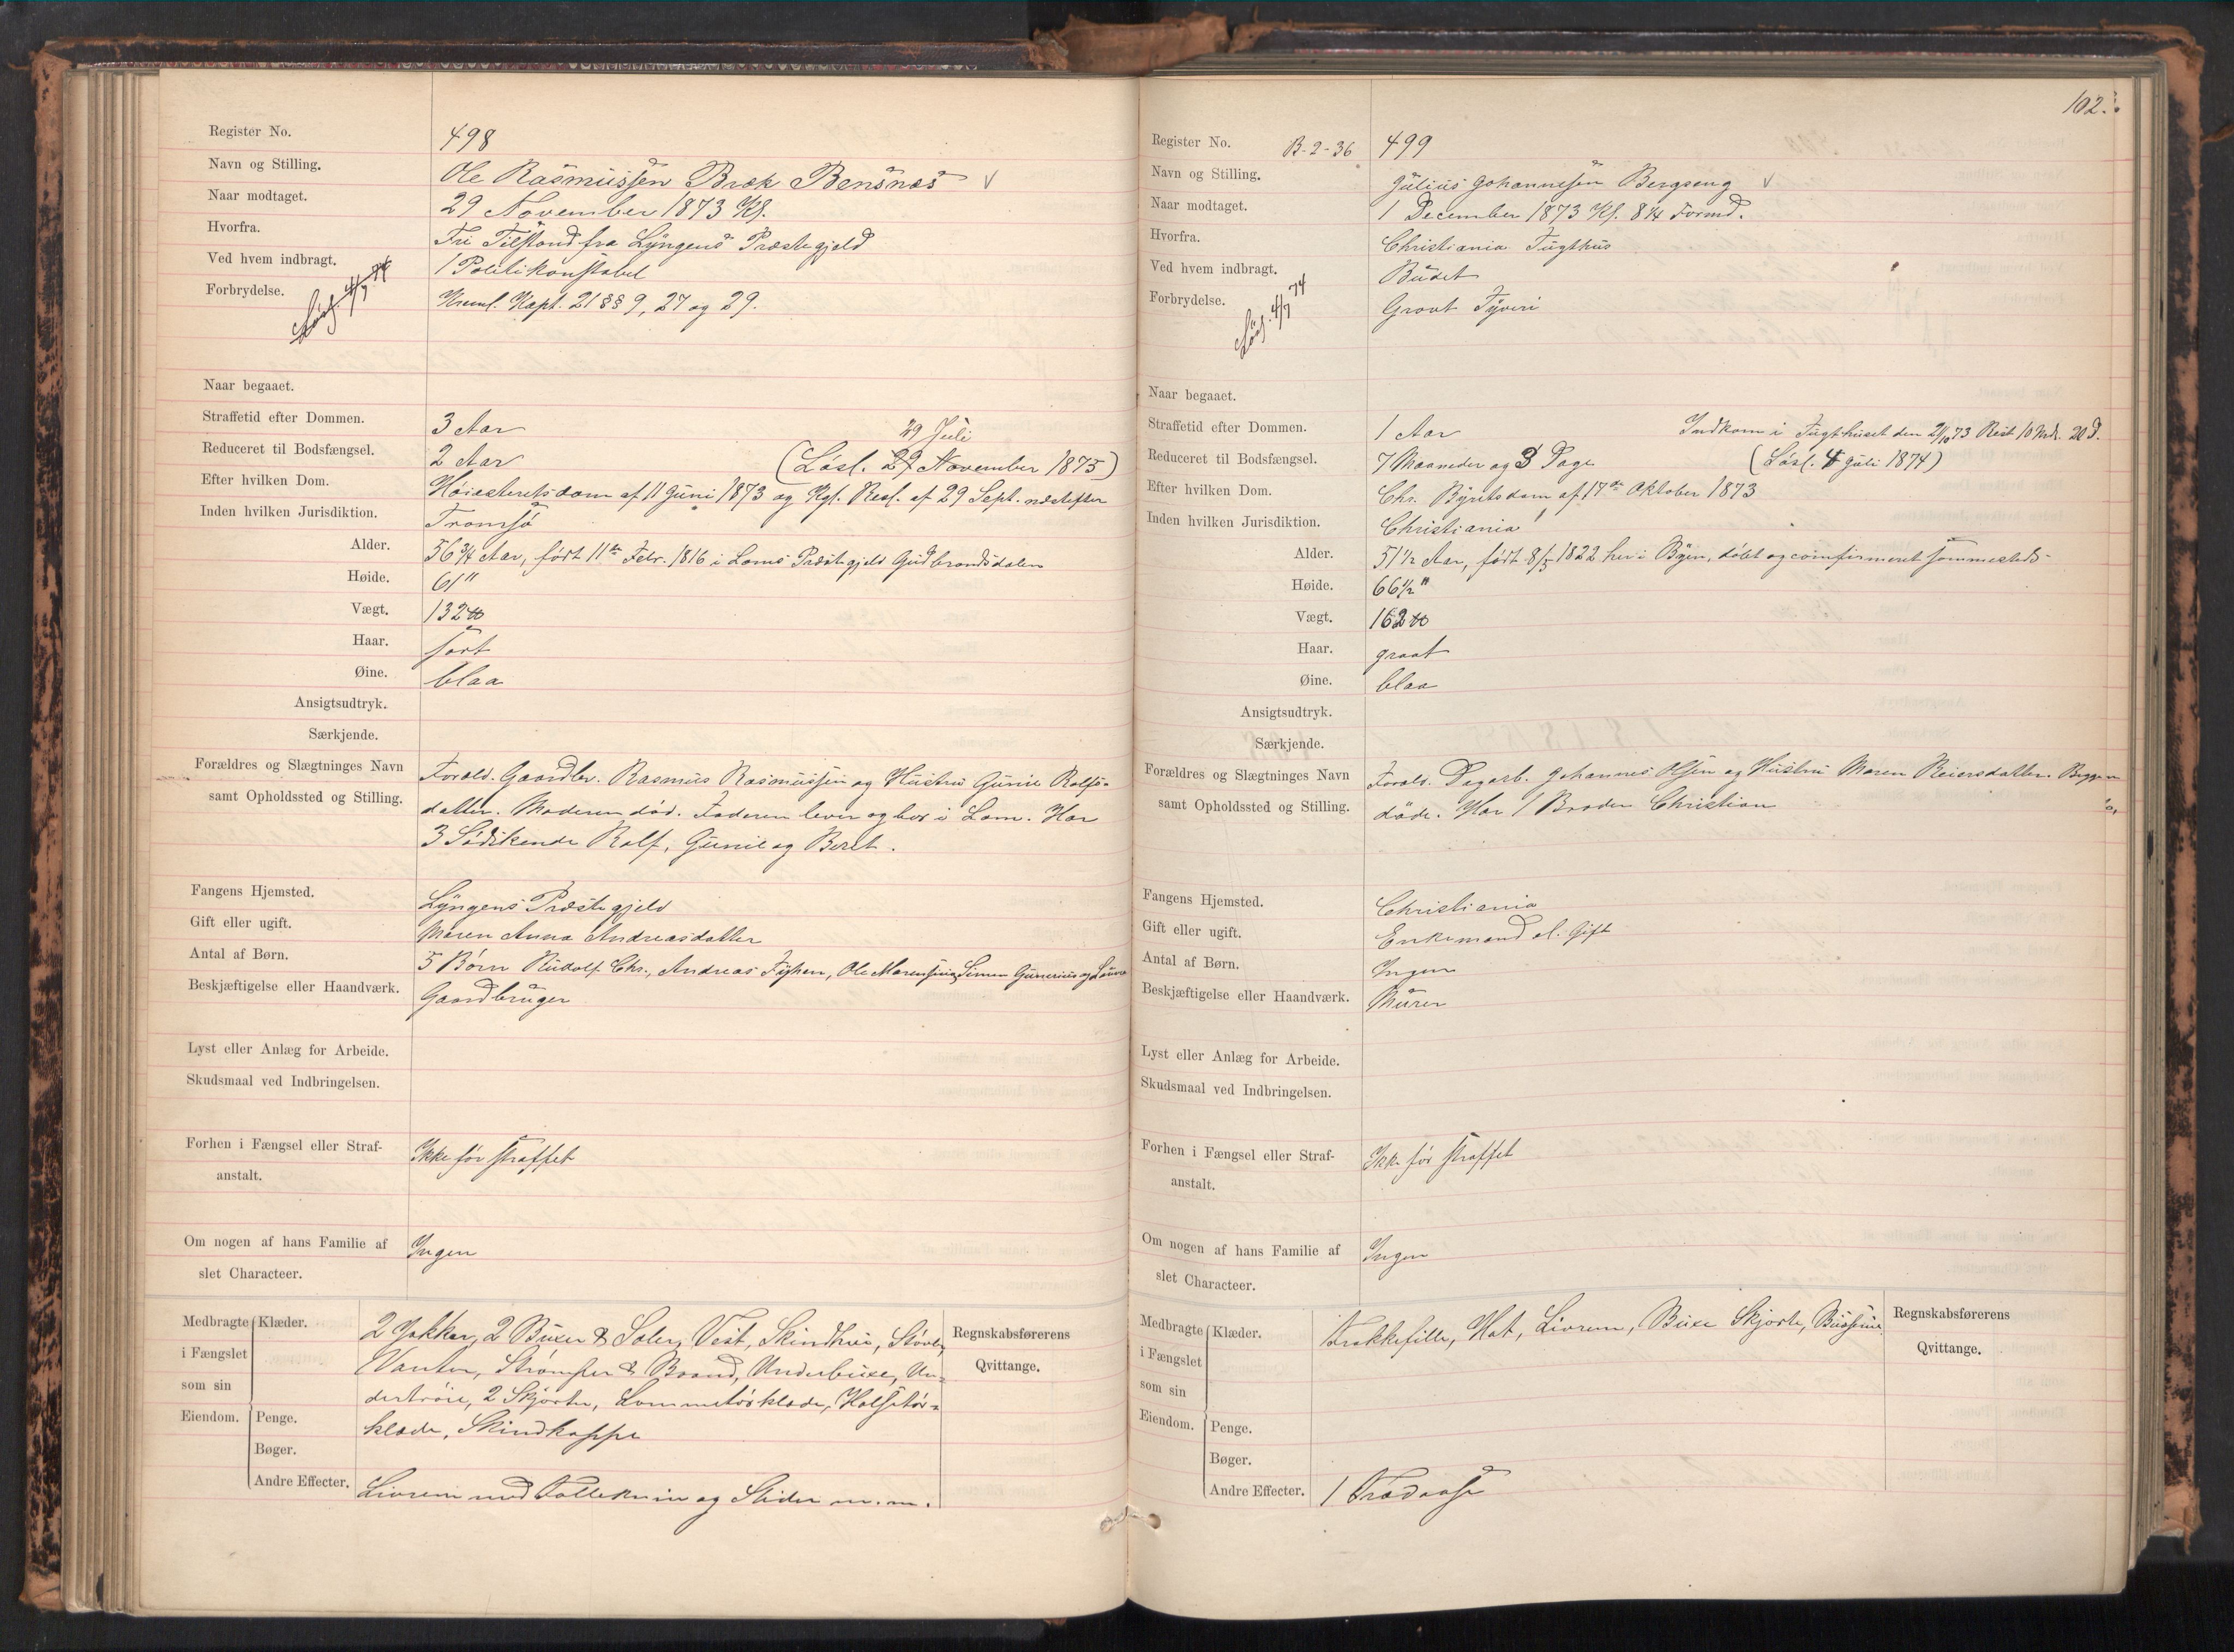 Register No. 498
Navn og Stilling. Ole Rasmussen Bræk Bensnæs V
Naar modtaget. 29 November 1873 Kl.
Hvorfra. Fri Tilstand fra Lyngens Præstegjeld
Ved hvem indbragt. 1 Politikonstabel
Forbrydelse. Løsl. 4/7 74 Kriml. Kapt. 21 §§ 9, 27 og 29.
Naar begaaet.
Straffetid efter Dommen. 3 Aar 29 Juli
Reduceret til Bodsfængsel. 2 Aar (Løsl. 29 November 1875)
Efter hvilken Dom. Høiesteretsdom af 11 Juni 1873 og Kgl. Resl. af 29 Sept. næstefter
Inden hvilken Jurisdiktion. Tromsø
Alder. 56 3/4 Aar, født 11te Febr. 1816 i Loms Præstegjeld Gudbrandsdalen
Høide. 61"
Vægt. 132 ℔
Haar. sort
Øine. blaa
Ansigtsudtryk.
Særkjende.
Forældres og Slægtninges Navn Foræld. Gaardbr. Rasmus Rasmussen og Hustru Gunil Rolfs-
samt Opholdssted og Stilling. datter. Moderen død. Faderen lever og bor i Lom. Har
3 Sødskende Rolf, Gunil og Beret.
Fangens Hjemsted. Lyngens Præstegjeld
Gift eller ugift. Maren Anna Andreasdatter
Antal af Børn. 5 Børn Rudolf Chr., Andreas Ole Simon Gunerius og
Beskjæftigelse eller Haandværk. Gaardbruger
Lyst eller Anlæg for Arbeide.
Skudsmaal ved Indbringelsen.
Forhen i Fængsel eller Straf- Ikke før straffet
anstalt.
Om nogen af hans Familie af Ingen
slet Characteer.
Medbragte Klæder. 2 Jakker, 2 Buxer & Seler, Vest, Skindhue, Støvler, Regnskabsførerens
i Fængslet Vanter, Strømper & Baand, Underbuxe, Un- Qvittange.
som sin dertrøie, 2 Skjorter, Lommetørklæde, Halstør-
Eiendom. Penge. klæde, Skindkappe
Bøger.
Andre Effecter. Livrem med Tollekniv og Slider m.m.
102.
Register No. B-2-36 499
Navn og Stilling. Julius Johannesen Bergseng V
Naar modtaget. 1 December 1873 Kl. 8 1/4 Formd.
Hvorfra. Christiania Tugthus
Ved hvem indbragt. Budet
Forbrydelse. Løsl. 4/7 74 Grovt Tyveri
Naar begaaet.
Straffetid efter Dommen. 1 Aar Indkom i Tugthuset den 21/10 73 Rest 10 Mdr. 20 D.
Reduceret til Bodsfængsel. 7 Maaneder og 3 Dage (Løsl. 4 Juli 1874)
Efter hvilken Dom. Chr. Byretsdom af 17de Oktober 1873
Inden hvilken Jurisdiktion. Christiania
Alder. 51 1/2 Aar, født 8/5 1822 her i Byen, døbt og confirmeret sammesteds
Høide. 66 1/2"
Vægt. 162 ℔
Haar. graat
Øine. blaa
Ansigtsudtryk.
Særkjende.
Forældres og Slægtninges Navn Foræld. Dagarb. Johannes Olsen og Hustru Maren Reiersdatter. Begge
samt Opholdssted og Stilling. døde. Har 1 Broder Christian
Fangens Hjemsted. Christiania
Gift eller ugift. Enkemand el. Gift
Antal af Børn. Ingen
Beskjæftigelse eller Haandværk. Murer
Lyst eller Anlæg for Arbeide.
Skudsmaal ved Indbringelsen.
Forhen i Fængsel eller Straf- Ikke før straffet
anstalt.
Om nogen af hans Familie af Ingen
slet Characteer.
Medbragte Klæder. Frakkefille, Hat, Livrem, Buxe Skjorte, Regnskabsførerens
i Fængslet Qvittange.
som sin
Eiendom. Penge.
Bøger.
Andre Effecter. 1